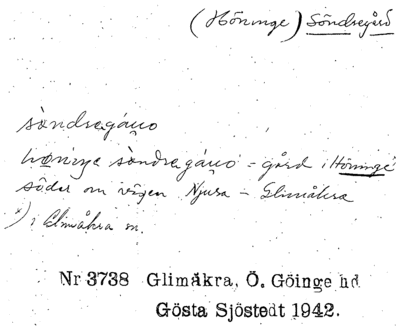 (Höninge) Söndregård
söndragáuo
höninge söndragáuo - gård i Höninge
söder om vägen Njura - Glimåkra
x) i Glimåkra sn.
Nr 3738 Glimåkra, Ö. Göinge hd
Gösta Sjöstedt 1942.